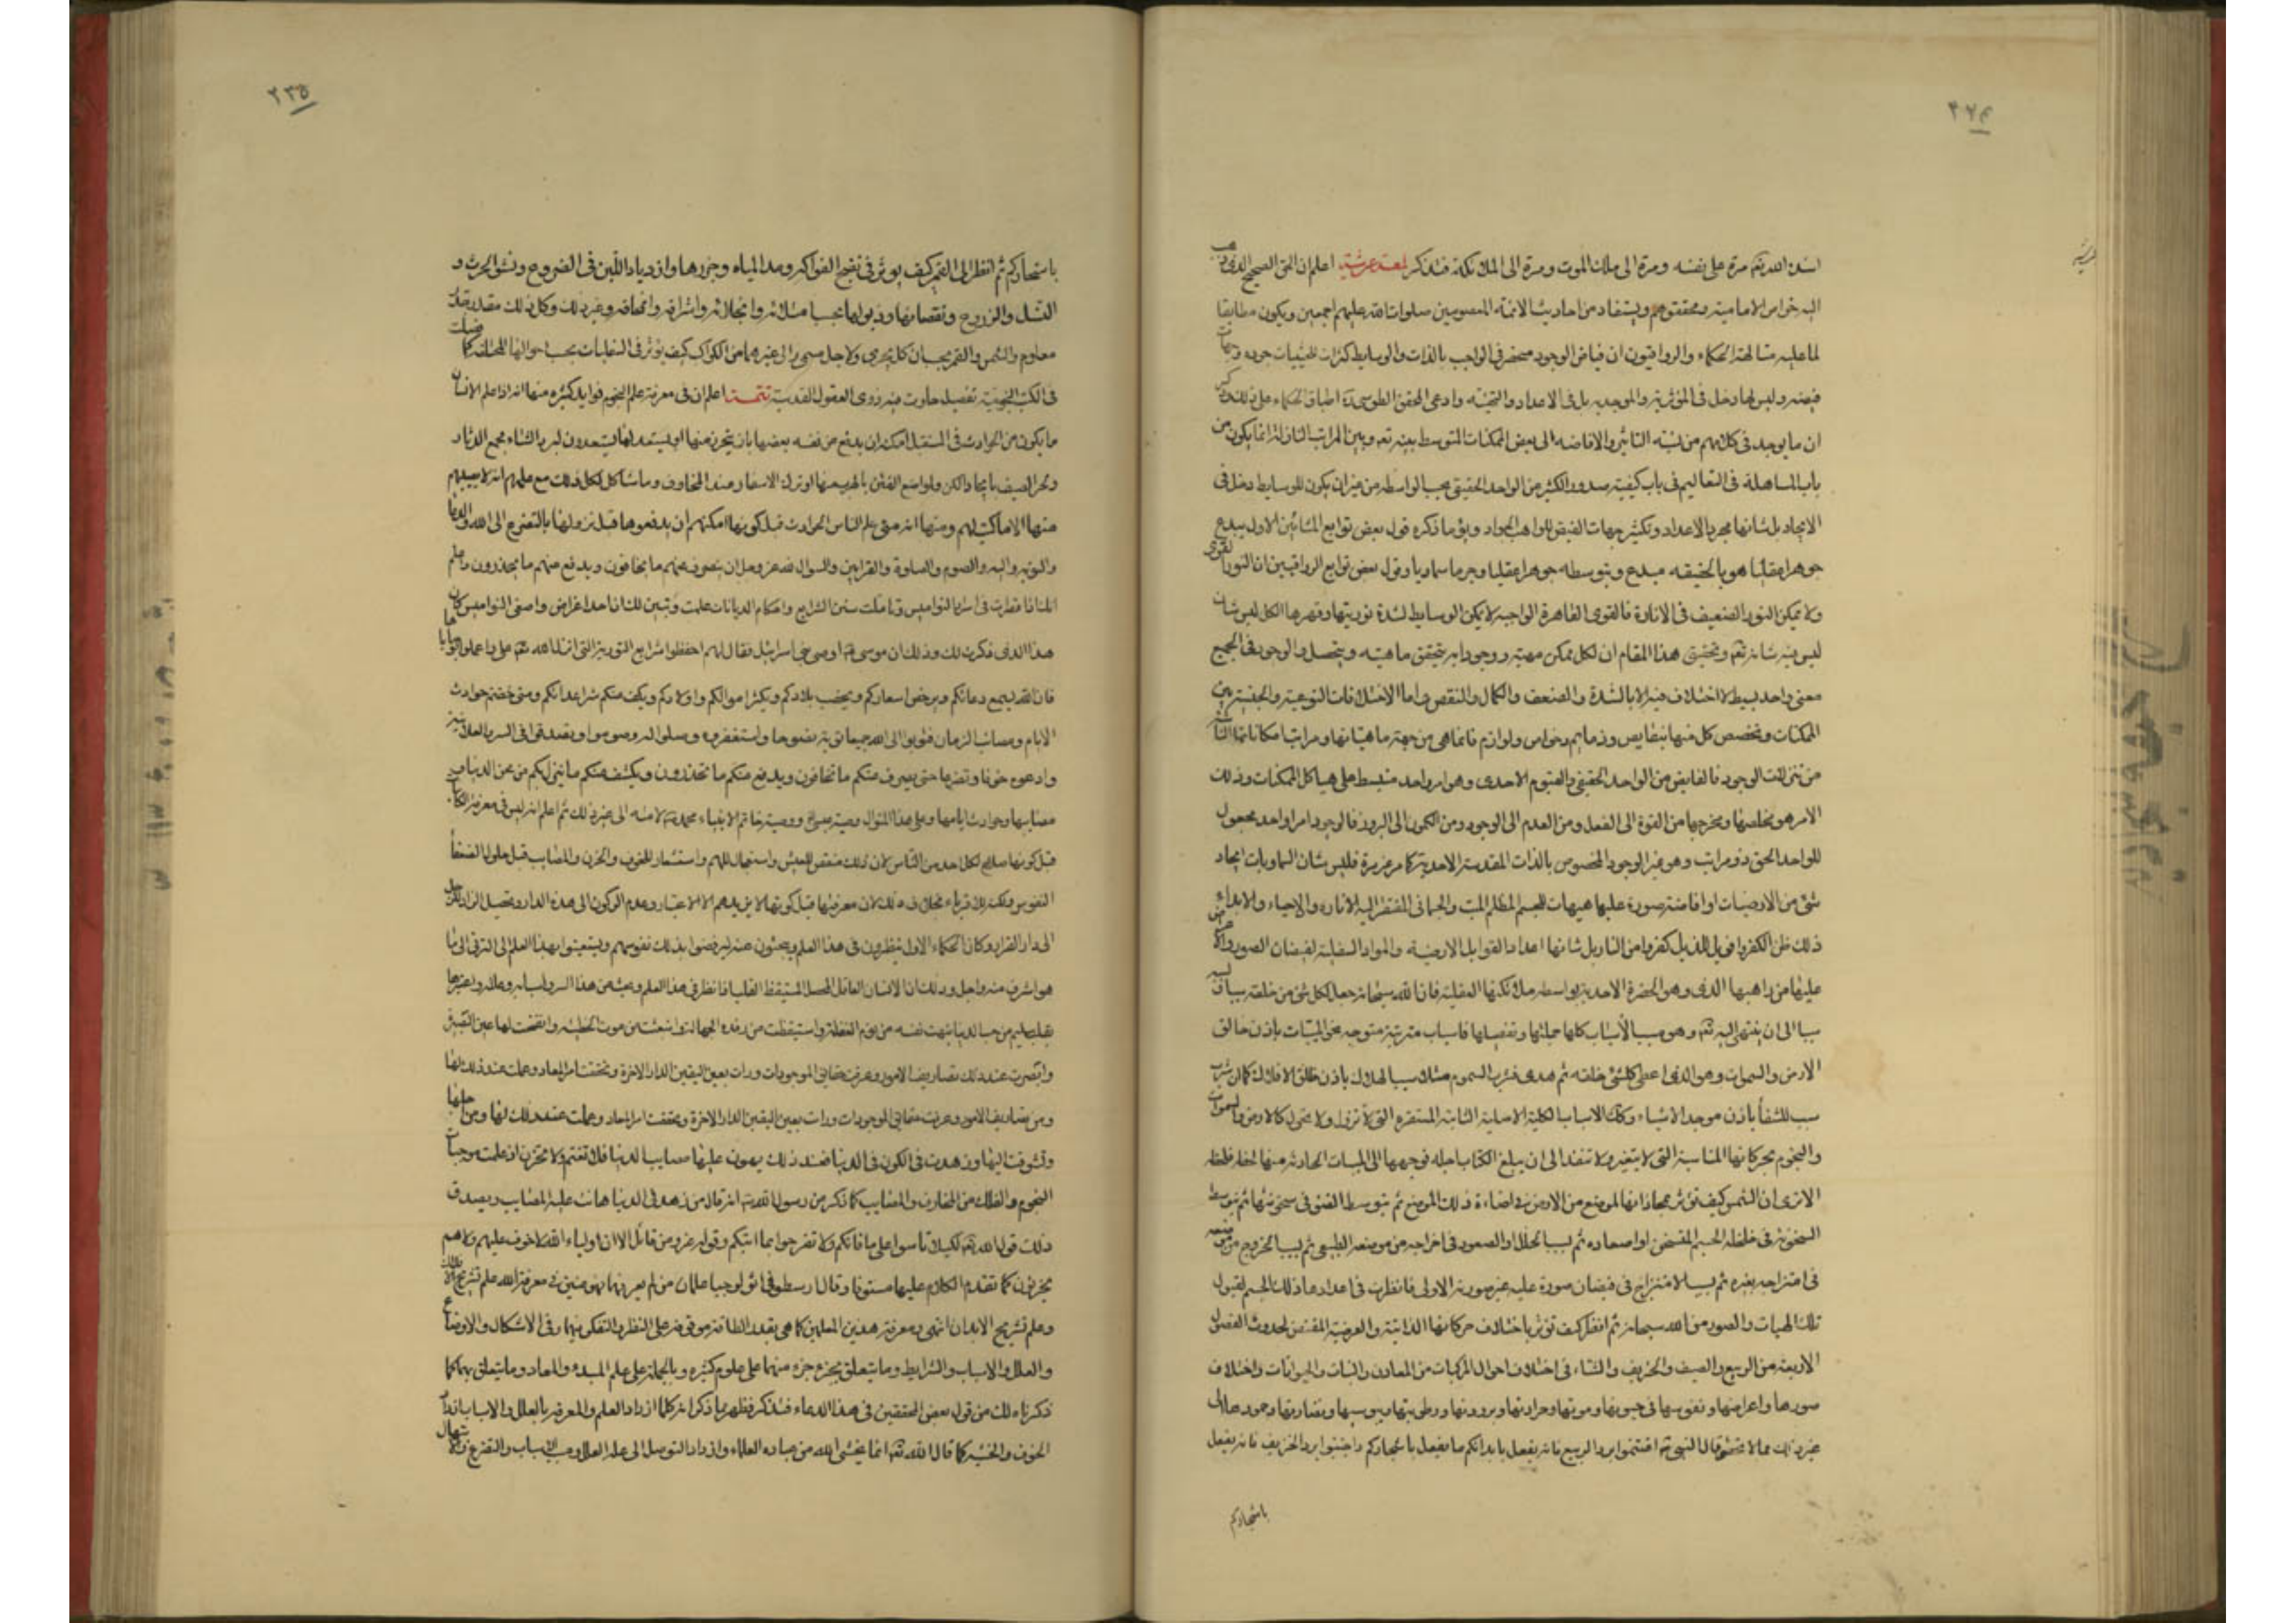 اسند الله تعم مرة على نفسه ومرة الى ملك الموت ومرة الى الملائكة فتذكر لمعة عرشية اعلم ان الحق الصحيح الذى ذهب
اليه خواص الامامية ومحققوهم ويستفاد من احاديث الائمة المعصومين صلوات الله عليهم اجمعين ويكون مطابقا
لما عليه متالهة الحكماء والرواقيون ان فياض الوجود منحصر فى الواجب بالذات والوسايط كثرات لحيثيات جوده وجهات
فيضه وليس لها دخل فى المؤثرية والموجدية بل فى الاعداد والتهيئة وادعى المحقق الطوسى اطباق الحكماء على ذلك وذكر
ان ما يوجد فى كلامهم من نسبة التاثير والافاضة الى بعض الممكنات المتوسط بينه تعم وبين المراتب النازلة انما يكون من
باب المساهلة فى التعاليم فى باب كيفية صدور الكثير من الواحد الحقيقى بحسب الواسطة من غير ان يكون للوسايط دخل فى
الايجاد بل شانها مجرد الاعداد وتكثير جهات الفيض للواهب الجواد ويؤ ما ذكره قول بعض توابع المشائين الاول يبدع
جوهرا عقليا هو بالحقيقة مبدع وبتوسطه جوهرا عقليا وجرما سماويا وقول بعض توابع الرواقيين ان النور القوى
ولا يمكن النور الضعيف فى الانارة فالقوى القاهرة الواجبة لا يمكن الوسايط لشدة نوريتها وقهرها الكل ليس شان
ليس فيه شانه تعم وتحقيق هذا المقام ان لكل ممكن مهية ووجودا به يتحقق ماهيته ويتحصل والوجود فى الجميع
معنى واحد بسيط لا اختلاف فيه الا بالشدة والضعف والكمال والنقص واما الاختلافات النوعية والجنسية بين
الممكنات وتخصص كل منها بنقايص وذمايم وخواص ولوازم فانما هى من جهة ماهياتها ومراتب امكاناتها الناشئة
من تنزلات الوجود فالفايض من الواحد الحقيقى والقيوم الاحدى وهو امر واحد منبسط على هياكل الممكنات وذلك
الامر هو مخلصها ومخرجها من القوة الى الفعل ومن العدم الى الوجود ومن الكمون الى البروز فالوجود امر واحد مجعول
للواحد الحق ذو مراتب وهو غير الوجود المخصوص بالذات المقدسة الاحدية كما مر غير مرة فليس شان السماويات ايجاد
شئ من الارضيات او افاضة صورة عليها هيهات للجسم المظلم الميت والجسمانى المفتقر اليه الانارة والاحياء والابداع
ذلك ظن الكفروا فويل للذين كفروا من النار بل شانها اعداد القوابل الارضية والمواد السفلية لفيضان الصور والاعراض
عليها من واهبها الذى وهو الحضرة الاحدية بواسطة ملائكتها العقلية فان الله سبحانه جعل لكل شئ من خلقه سببا ولسببه
سببا الى ان ينتهى اليه تعم وهو مسبب الأسباب كلها جملتها وتفصيلها فاسباب مترتبة متوجهة نحو المسببات باذن خالق
الارض والسموات وهو الذى اعطى كل شئ خلقه ثم هدى فشرب السموم مثلا سبب الهلاك باذن خالق الافلاك كما ان شرب
سبب للشفأ باذن موجد الاشياء وكك الاسباب الكلية الاصلية الثابتة المستقرة التى لا تزول ولا تحول كالارض والسموات
والنجوم بحركاتها المناسبة التى لا يتغير ولا تنفد الى ان يبلغ الكتاب اجله فوجهها الى المسببات الحادثة منها لحظة فلحظة
الا ترى ان الشمس كيف تؤثر بمحاذاتها لموضع من الارض فى اضاءة ذلك الموضع ثم بتوسط الضوء فى سخونتها ثم بتوسط
السخونة فى خلخلة الجسم المتسخن او اصعاده ثم بسبب التخلخل او الصعود فى اخراجه من موضعه الطبيعى ثم بسبب الخروج من موضعه
فى امتزاجه بغيره ثم بسبب الامتزاج فى فيضان صورة عليه غير صورته الاولى فانظرت فى اعدادها ذلك الجسم لقبول
تلك الهيات والصور من الله سبحانه ثم انظر كيف تؤثر باختلاف حركاتها الذاتية والعرضية المقتضى لحدوث الفصول
الاربعة من الربيع والصيف والخريف والشتاء فى اختلاف احوال المركبات من المعادن والنبات والحيوانات واختلاف
صورها واعراضها ونفوسها فى حيوتها وموتها وحرارتها وبرودتها ورطوبتها ويبوستها ونضارتها وجمودها الى
غير ذلك مما لا يحصى قال النبى ص اغتنموا برد الربيع فانه يفعل بابدانكم ما يفعل باشجاركم واجتنبوا برد الخريف فانه يفعل
باشجاركم
٢٣٥
باشجاركم ثم انظر الى القمر كيف يؤثر فى نضج الفواكه ومد المياه وجزرها وازدياد اللبن فى الضروع ونشو الحرث و
النسل والزروع ونقصانها وذبولها بحسب امتلائه وانجلائه واشراقه وانمحاقه وغير ذلك وكل ذلك مقدر بقدر
معلوم والشمس والقمر بحسبان كل يجرى ولاجل مسمى والى غيرهما من الكواكب كيف يؤثر فى السفليات بحسب احوالها المختلفة كما فصلت
فى الكتب النجومية تفصيل حارت فيه ذوى العقول القدسية تتمة اعلم ان فى معرفة علم النجوم فوايد كثيرة منها انه اذا علم الانسان
ما يكون من الحوادث فى المستقبل امكنه ان يدفع من نفسه بعضها بان يتحرز منها او يستعد لها كما يستعدون لبرد الشتاء بجمع الدثار
وحر الصيف بايجاد الكن ولمواضع الفتن بالهرب منها او ترك الاسفار عند المخاوف وما شاكل لكل ذلك مع علمهم انه لا يصيبهم
منها الا ما كتب لهم ومنها انه متى علم الناس الحوادث قبل كونها امكنهم ان يدفعوها قبل نزولها بالتضرع الى الله والدعا
والتوبة والبر والصوم والصلوة والقرابين والسوال لله عز وجل ان يصرف عنهم ما يخافون ويدفع عنهم ما يحذرون واعلم
انك اذا نظرت فى اسرار النواميس وتاملت سنن الشرايع واحكام الديانات علمت وتبين لك ان احد اغراض واضعى النواميس كان
هذا الذى ذكرت لك وذلك ان موسى ع اوصى بنى اسرائيل فقال لهم احفظوا شرايع التورية التى انزلها الله تعم على واعملوا بوصاياها
فان الله يسمع دعائكم ويرخص اسعاركم ويخصب بلادكم ويكثر اموالكم واولادكم ويكف عنكم شر اعدائكم ومتى خفتم حوادث
الايام ومصائب الزمان فتوبوا الى الله جميعا توبة نصوحا واستغفروه وصلوا له وصوموا وتصدقوا فى السر والعلانية
وادعوه خوفا وتضرعا حتى يصرف عنكم ما تخافون ويدفع عنكم ما تحذرون ويكشف عنكم ما ينزل بكم من محن الدنيا و
مصايبها وحوادث ايامها وعلى هذا المنوال وصية عيسى ع ووصية خاتم الانبياء محمد ص لامته الى غير ذلك ثم اعلم انه ليس فى معرفة الكائنات
قبل كونها صلاح لكل احد من الناس لان ذلك منغص للعيش واستعجال للهم واستشعار للخوف والحزن والمصايب قبل حلولها لضعفأ
النفوس ولكن قرناء بخلاف ذلك لان معرفتها قبل كونها لا يزيدهم الا الاعتبار وعدم الركون الى هذه الدار وتحصيل الزاد للرحيل
الى دار القرار وكان الحكماء الاول ينظرون فى هذا العلم ويبحثون عنه ليرضوا بذلك نفوسهم ويستعينوا بهذا العلم الى الترقى الى ما
هو اشرف منه واجل وذلك ان الانسان العاقل المحصل المستيقظ القلب اذا نظر فى هذا العلم وبحث عن هذا السر واسبابه وعلله واعتبرها
بقلب سليم من حب الدنيا انتبهت نفسه من نوم الغفلة واستيقظت من رقدة الجهالة وانبعثت من موت الخطيئة وانفتحت لها عين البصيرة
وابصرت عند ذلك تصاريف الامور وعرفت حقايق الموجودات ورات بعين اليقين الدار الاخرة وتحققت امر المعاد وعلمت عند ذلك لها
ومن تصاريف الامور وعرفت حقايق الموجودات ورات بعين اليقين الدار الاخرة وتحققت امر المعاد وعلمت عند ذلك لها ومن اجلها
وتشوقت اليها وزهدت فى الكون فى الدنيا فعند ذلك يهون عليها مصايب الدنيا فلا تغتم ولا تحزن اذ علمت موجبات
النجوم والفلك من المخاوف والمصايب كما ذكر من رسول الله ص انه قال من زهد فى الدنيا هانت عليه المصايب ويصدق
ذلك قول الله تعم لكيلا تاسوا على ما فاتكم ولا تفرحوا بما اتيكم وقوله عز من قائل الا ان اولياء الله لا خوف عليهم ولا هم
يحزنون كما تقدم الكلام عليها مستوفا وقال ارسطو فى اثولوجيا علمان من لم يعرفهما فهو عنين فى معرفة الله علم تشريح الافلاك
وعلم تشريح الابدان انتهى ومعرفة هذين العلمين كما هى بقدر الطاقة موقوفة على النظر والتفكر فيهما وفى الاشكال والاوضاع
والعلل والاسباب والشرايط وما يتعلق بجزء جزء منهما على علوم كثيرة وبالجملة على علم المبدء والمعاد وما يتعلق بهما كما
ذكرناه لك من قول بعض المحققين فى هذا الدعاء فتذكر فظهر بما ذكر انه كلما ازداد العلم والمعرفة بالعلل والاسباب ازداد
الخوف والخشية كما قال الله تعم انما يخشى الله من عباده العلماء وازداد التوسل الى علة العلل ومسبب الاسباب والتضرع والابتهال